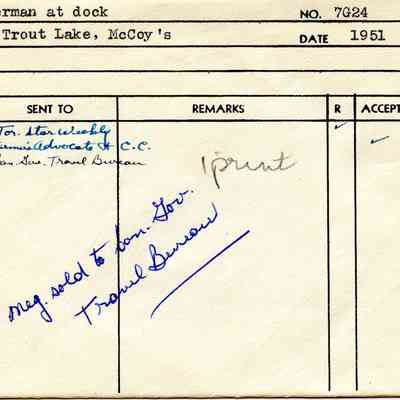 erman at dock NO. 7G24
Trout Lake, McCoy's DATE 1951
SENT TO REMARKS R ACCEPT
Tor. Star Weekly
armer's Advocate H. C. C.
an. Gov. Travel Bureau
1 print
Neg. sold to Can. Gov.
Travel Bureau